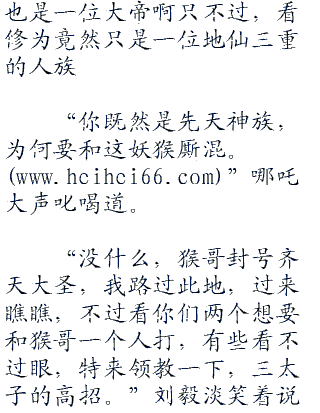 也是一位大帝啊只不过，看
修为竟然只是一位地仙三重
的人族
“你既然是先天神族，
为何要和这妖猴厮混。
(www.hcihci66.com)”哪吒
大声叱喝道。
“没什么，猴哥封号齐
天大圣，我路过此地，过来
瞧瞧，不过看你们两个想要
和猴哥一个人打，有些看不
过眼，特来领教一下，三太
子的高招。”刘毅淡笑着说